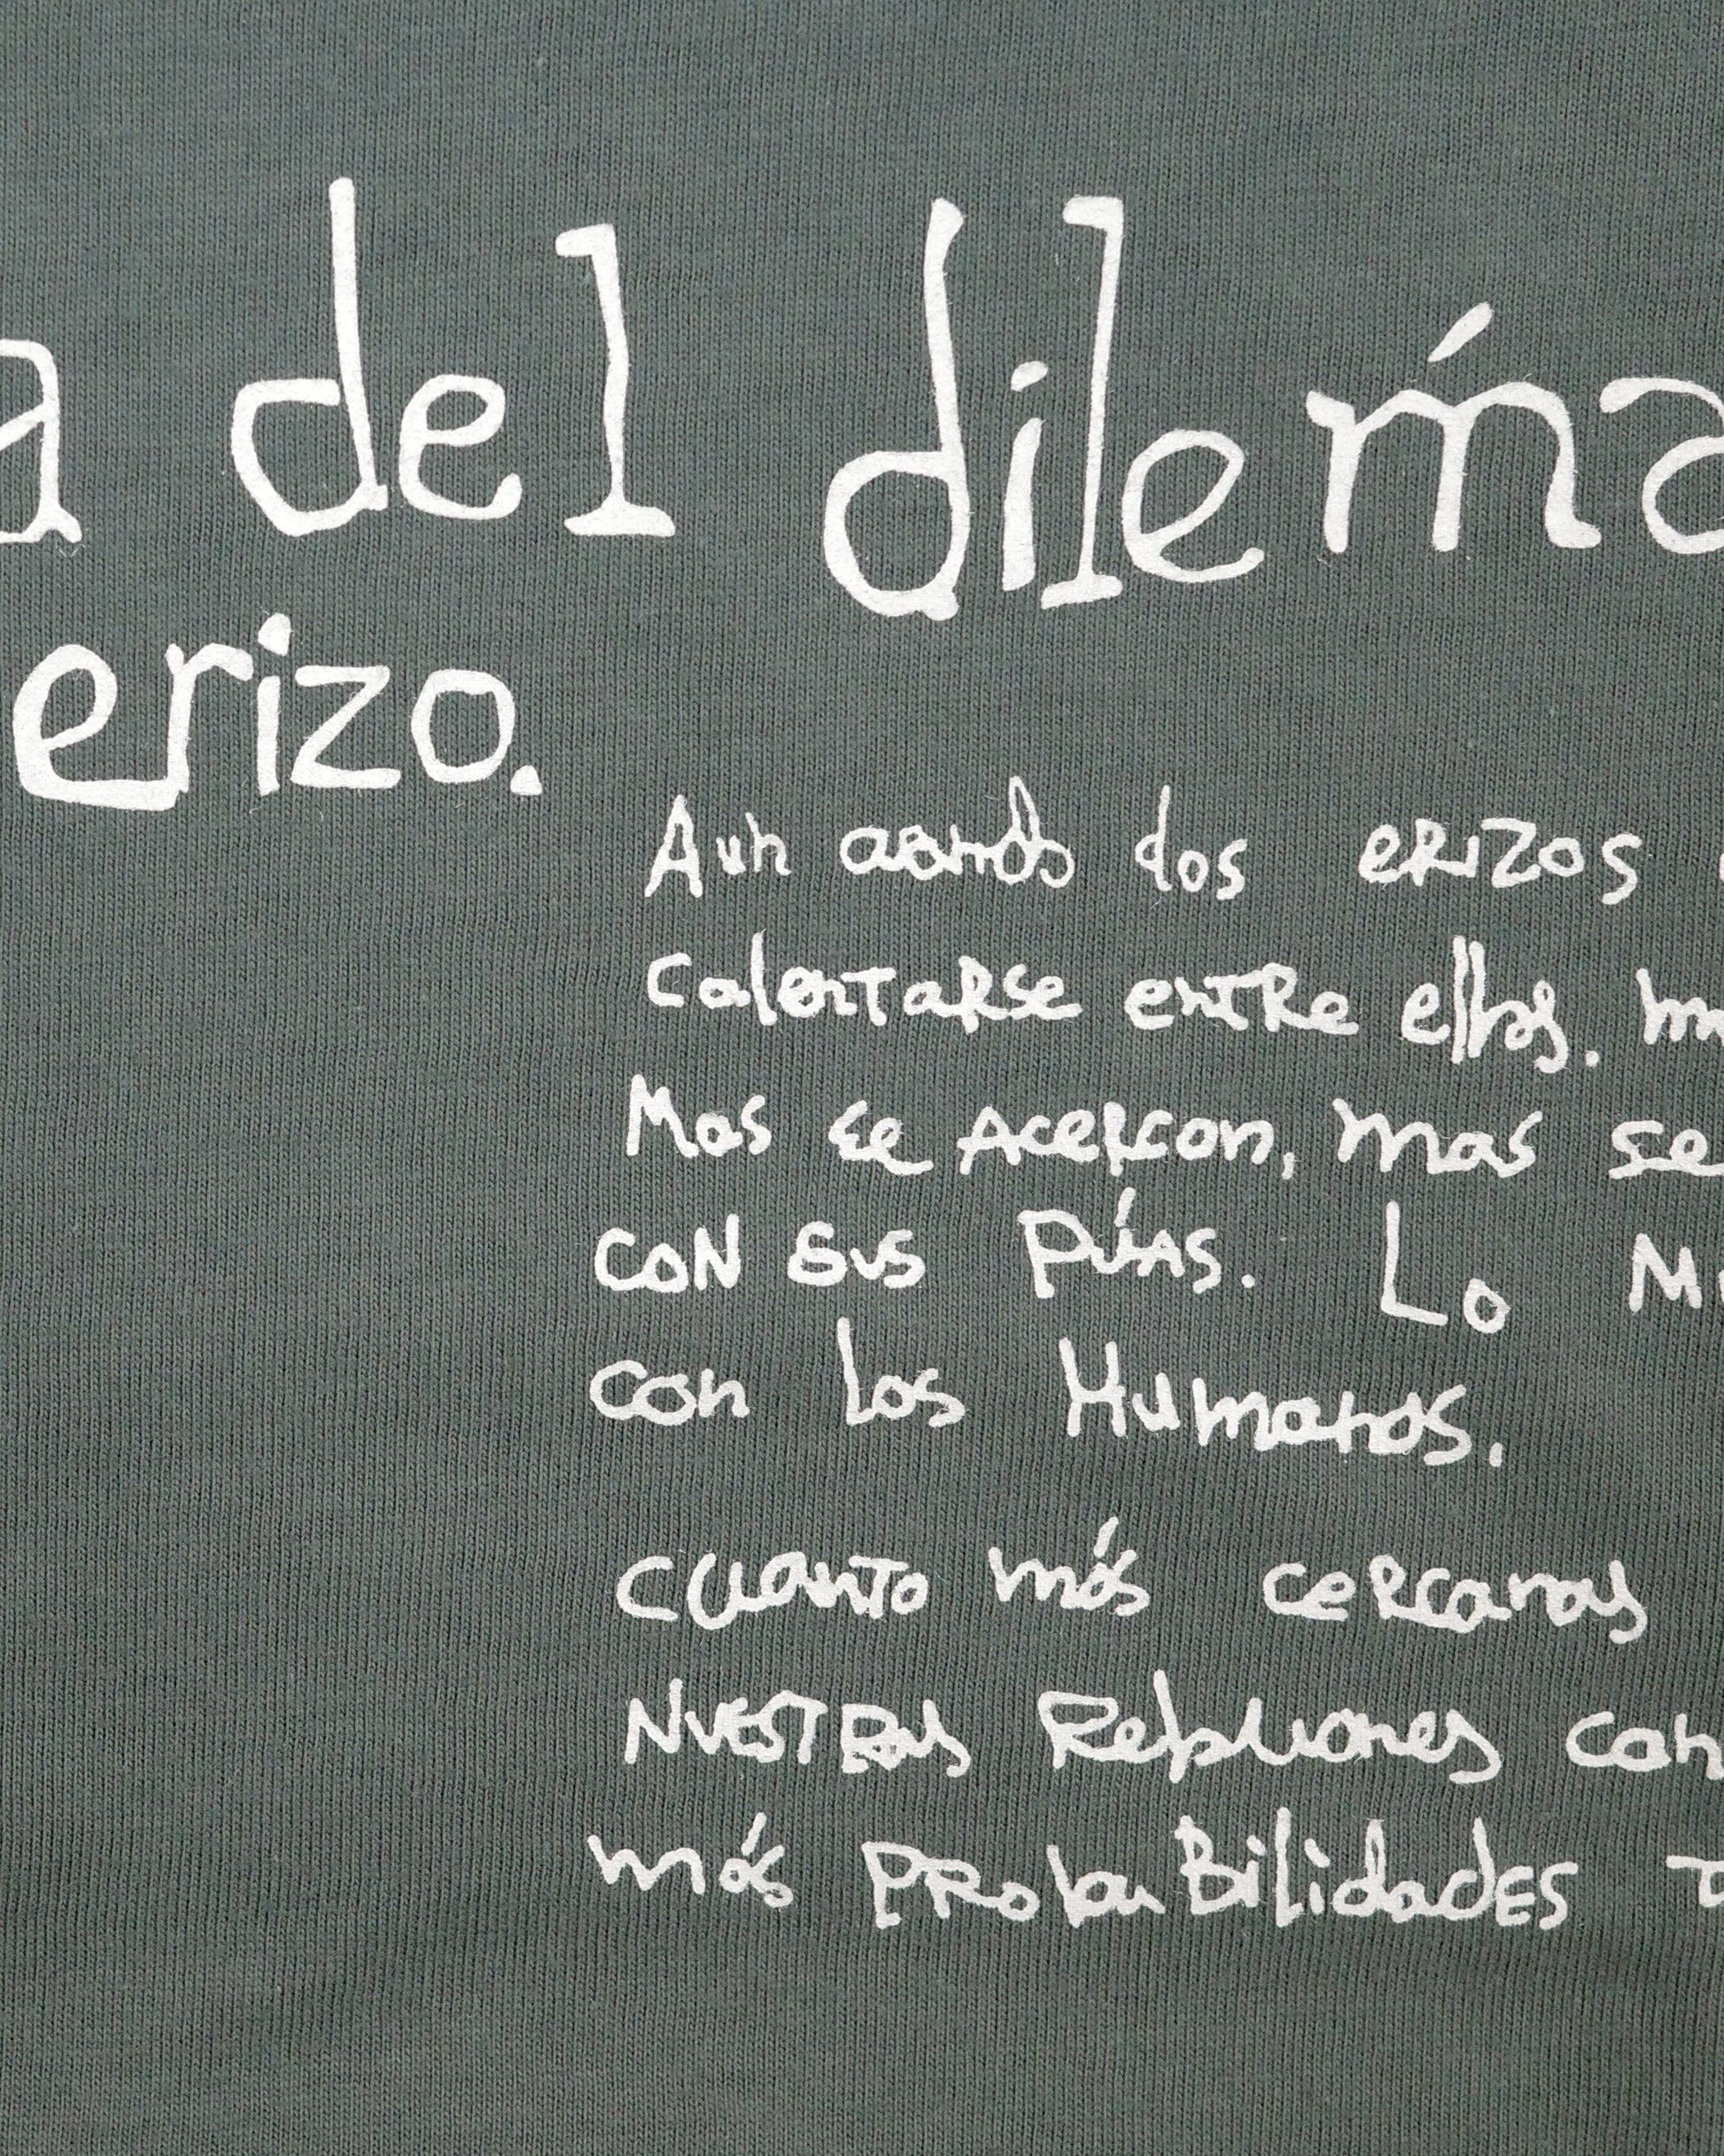 a del dilema
erizo.
Aun cuando dos erizos
Calentarse entre ellos.
Mas se Acercan, mas se
CON SUS PÚAS. Lo
con los Humanos.
CUANTO más cercanas
NUESTRAS Relaciones con
más PROBABilidades